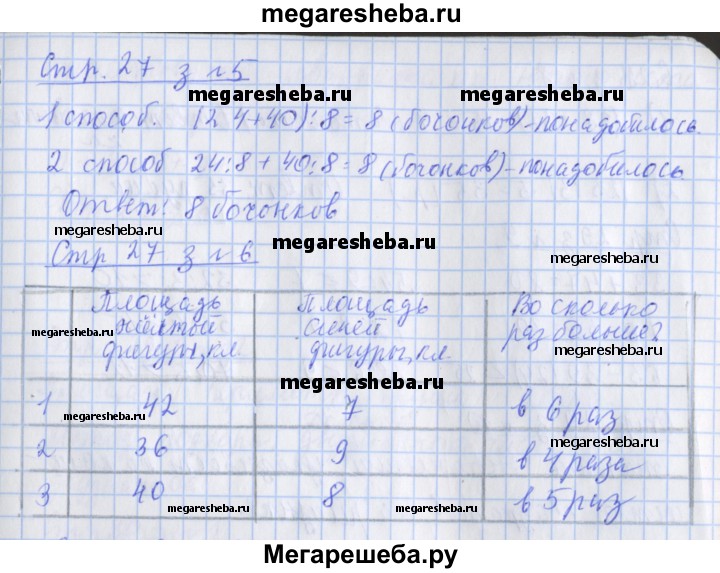 megaresheba.ru
Стр. 27 з №5
megaresheba.ru megaresheba.ru
1 способ. (24+40):8=8 (бочонков)-понадобилось.
2 способ 24:8+40:8=8 (бочонков)-понадобилось.
Ответ: 8 бочонков
megaresheba.ru megaresheba.ru megaresheba.ru
Стр 27 з №6
Площадь Площадь Во сколько
жёлтой синей раз больше?
megaresheba.ru megaresheba.ru
фигуры, кл. фигуры, кл.
megaresheba.ru
1 42 7 в 6 раз
megaresheba.ru megaresheba.ru
2 36 9 в 4 раза
3 40 8 в 5 раз
megaresheba.ru megaresheba.ru
Мегарешеба.ру